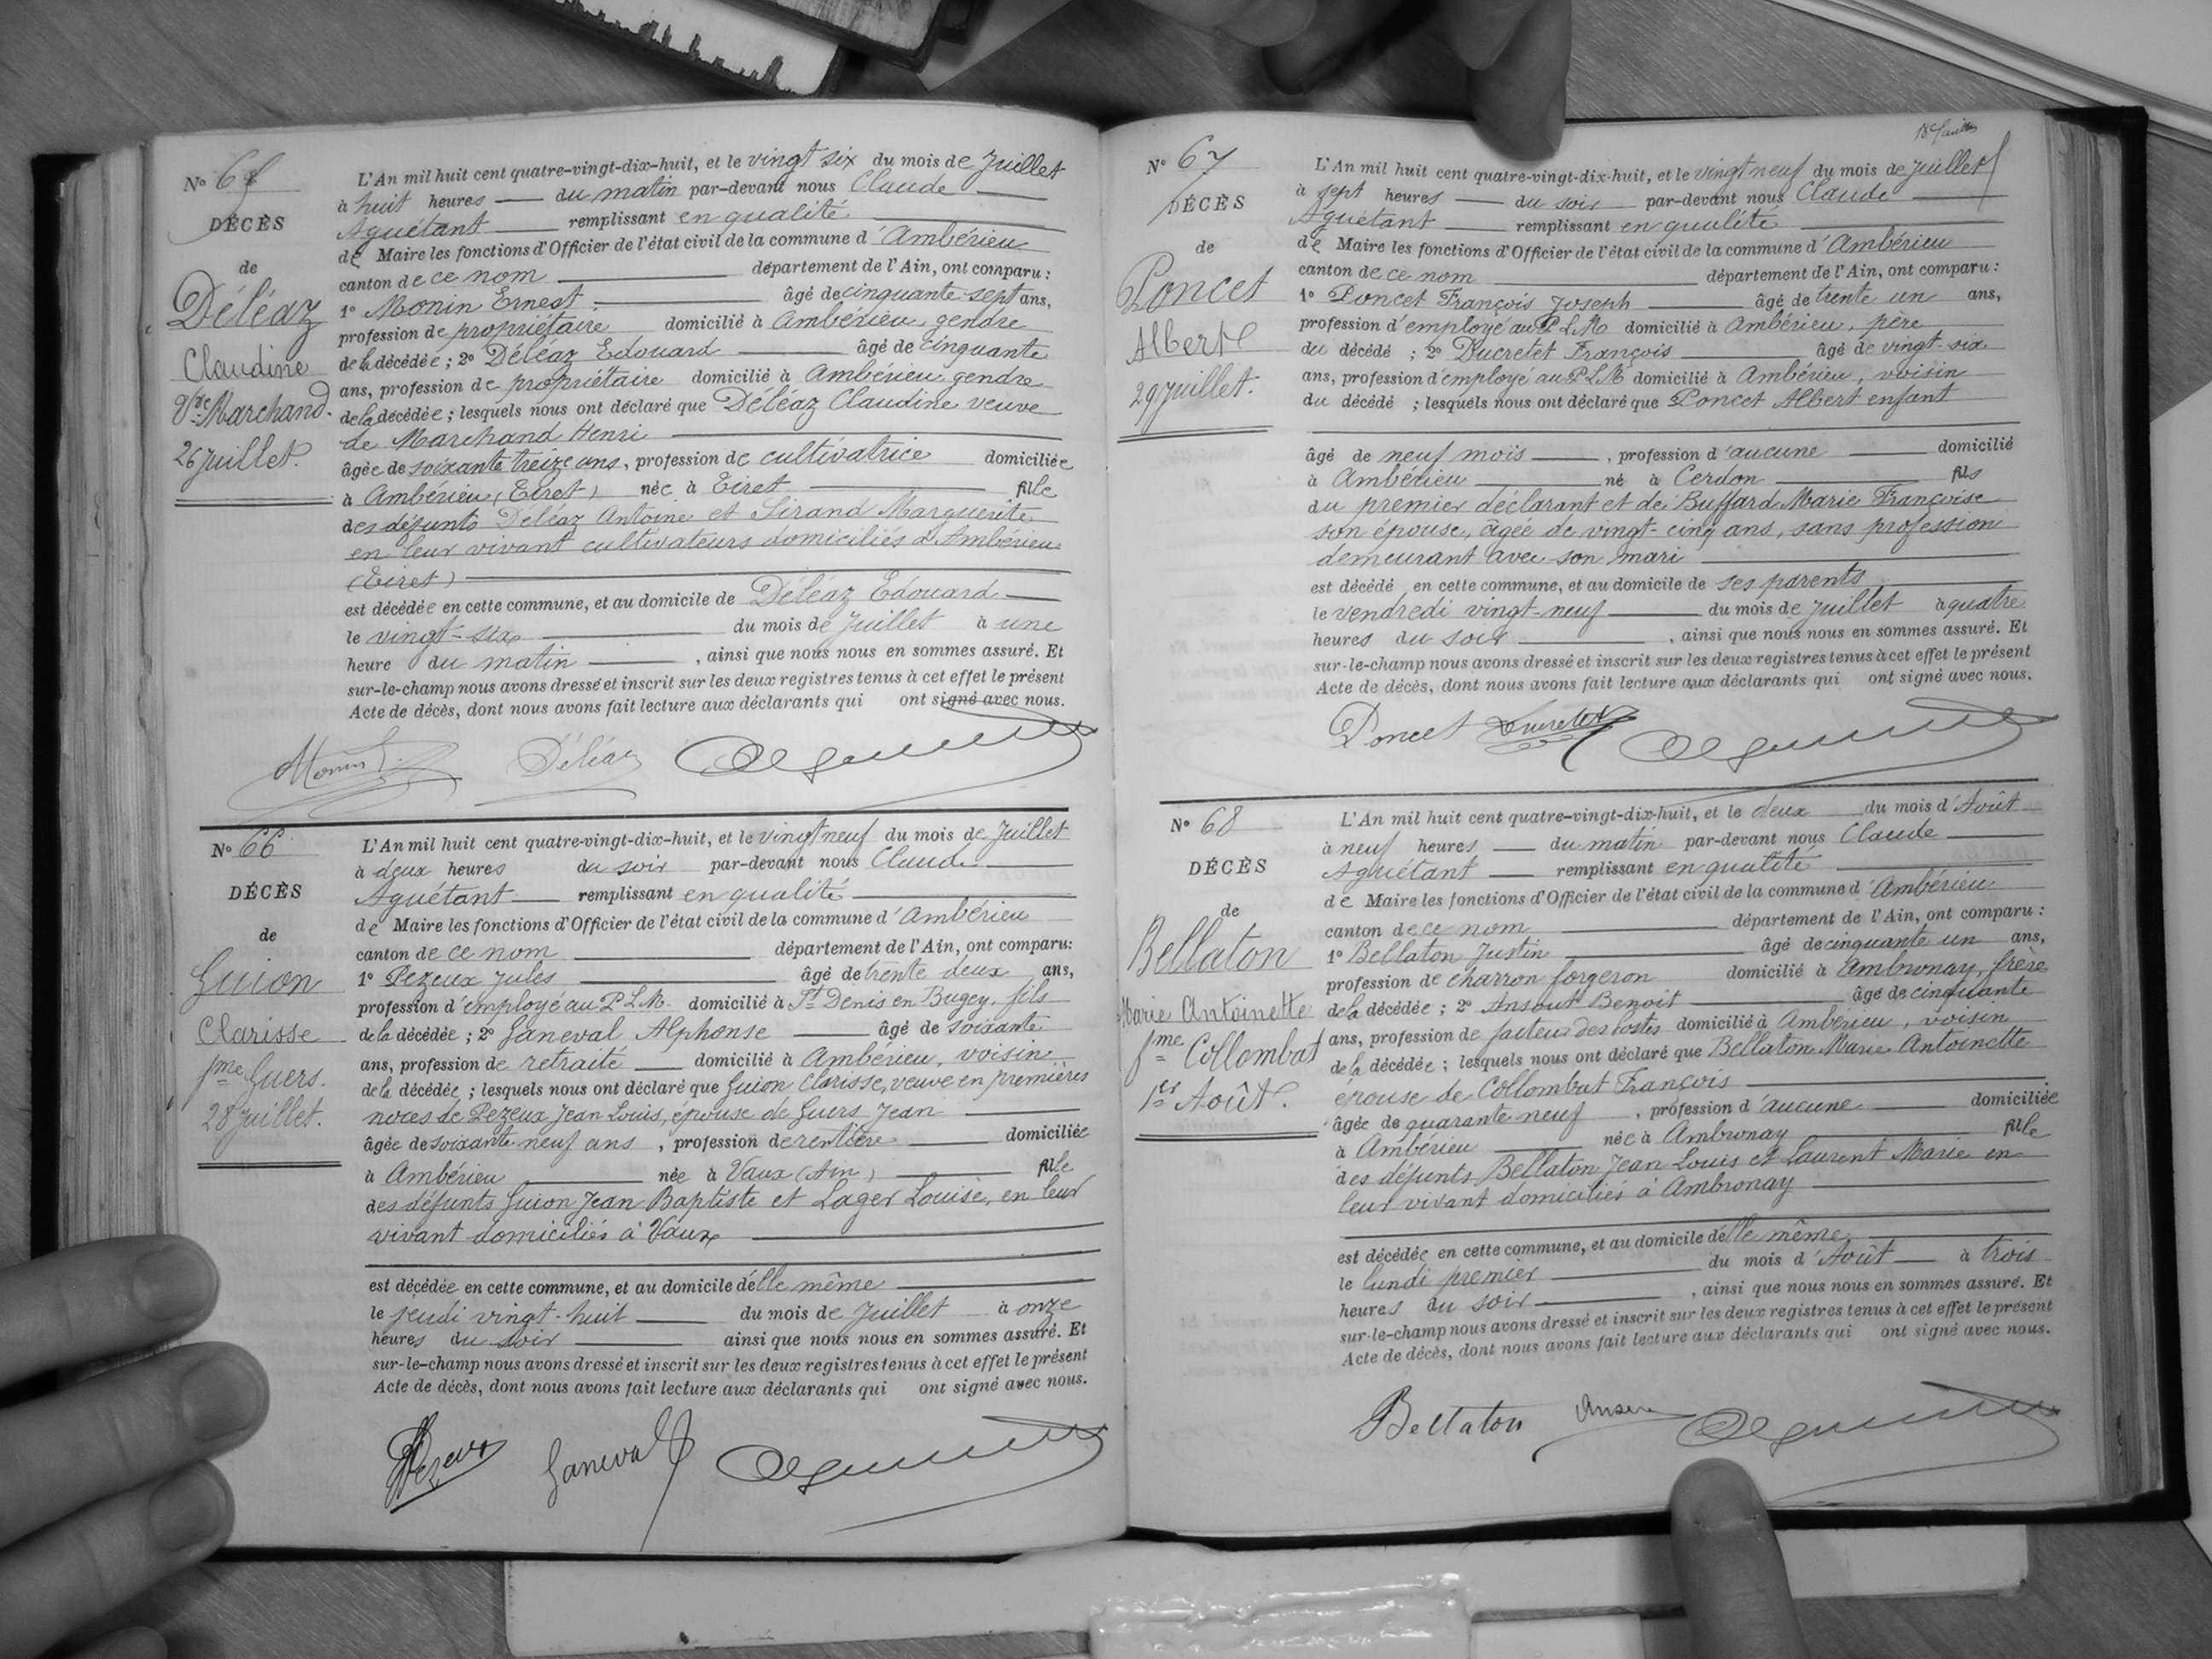 DÉCÈS
de
Déléaz
Claudine
Vve Marchand.
26 juillet.
L'An mil huit cent quatre-vingt-dix-huit, et le vingt six du mois de Juillet
à huit heures du matin par-devant nous Claude
Aguétant remplissant en qualité
de Maire les fonctions d'Officier de l'état civil de la commune d'Ambérieu
canton de ce nom département de l'Ain, ont comparu :
1º Monin Ernest âgé de cinquante-sept ans,
profession de propriétaire domicilié à Ambérieu, gendre
de la décédée ; 2º Déléaz Edouard âgé de cinquante
ans, profession de propriétaire domicilié à Ambérieu, gendre
de la décédée ; lesquels nous ont déclaré que Déléaz Claudine veuve
de Marchand Henri
âgée de soixante treize ans, profession de cultivatrice domiciliée
à Ambérieu (Tiret) née à Tiret fille
des défunts Déléaz Antoine et Sirand Marguerite
en leur vivant cultivateurs domiciliés à Ambérieu
(Tiret)
est décédée en cette commune, et au domicile de Déléaz Edouard
le vingt-six du mois de Juillet à une
heure du matin , ainsi que nous nous en sommes assuré. Et
sur-le-champ nous avons dressé et inscrit sur les deux registres tenus à cet effet le présent
Acte de décès, dont nous avons fait lecture aux déclarants qui ont signé avec nous.
Monin Déléaz
Nº 66
DÉCÈS
de
Guion
Clarisse
fme Guers.
28 juillet.
L'An mil huit cent quatre-vingt-dix-huit, et le vingt neuf du mois de Juillet
à deux heures du soir par-devant nous Claude
Aguétant remplissant en qualité
de Maire les fonctions d'Officier de l'état civil de la commune d'Ambérieu
canton de ce nom département de l'Ain, ont comparu:
1º Pezeux Jules âgé de trente deux ans,
profession d'employé au P.L.M. domicilié à St Denis en Bugey, fils
de la décédée ; 2º Ganeval Alphonse âgé de soixante
ans, profession de retraité domicilié à Ambérieu, voisin
de la décédée ; lesquels nous ont déclaré que Guion Clarisse, veuve en premières
noces de Pezeux Jean Louis, épouse de Guers Jean
âgée de soixante neuf ans , profession de rentière domiciliée
à Ambérieu née à Vaux (Ain) fille
des défunts Guion Jean Baptiste et Lager Louise, en leur
vivant domiciliés à Vaux
est décédée en cette commune, et au domicile d'elle même
le jeudi vingt-huit du mois de Juillet à onze
heures du soir ainsi que nous nous en sommes assuré. Et
sur-le-champ nous avons dressé et inscrit sur les deux registres tenus à cet effet le présent
Acte de décès, dont nous avons fait lecture aux déclarants qui ont signé avec nous.
Pezeux Ganeval
Nº 67
DÉCÈS
de
Poncet
Albert
29 juillet.
L'An mil huit cent quatre-vingt-dix-huit, et le vingt neuf du mois de Juillet
à sept heures du soir par-devant nous Claude
Aguétant remplissant en qualité
de Maire les fonctions d'Officier de l'état civil de la commune d'Ambérieu
canton de ce nom département de l'Ain, ont comparu :
1º Poncet François Joseph âgé de trente un ans,
profession d'employé au P.L.M domicilié à Ambérieu, père
du décédé ; 2º Ducretet François âgé de vingt-six
ans, profession d'employé au P.L.M domicilié à Ambérieu, voisin
du décédé ; lesquels nous ont déclaré que Poncet Albert enfant
âgé de neuf mois , profession d'aucune domicilié
à Ambérieu né à Cerdon fils
du premier déclarant et de Buffard Marie Françoise
son épouse, âgée de vingt-cinq ans, sans profession
demeurant avec son mari
est décédé en cette commune, et au domicile de ses parents
le vendredi vingt-neuf du mois de Juillet à quatre
heures du soir , ainsi que nous nous en sommes assuré. Et
sur-le-champ nous avons dressé et inscrit sur les deux registres tenus à cet effet le présent
Acte de décès, dont nous avons fait lecture aux déclarants qui ont signé avec nous.
Poncet Ducretet
Nº 68
DÉCÈS
de
Bellaton
Marie Antoinette
fme Collombat
1er Août.
L'An mil huit cent quatre-vingt-dix-huit, et le deux du mois d'Août
à neuf heures du matin par-devant nous Claude
Aguétant remplissant en qualité
de Maire les fonctions d'Officier de l'état civil de la commune d'Ambérieu
canton de ce nom département de l'Ain, ont comparu :
1º Bellaton Justin âgé de cinquante un ans,
profession de charron forgeron domicilié à Ambronay, frère
de la décédée ; 2º Benoit âgé de cinquante
ans, profession de facteur des Postes domicilié à Ambérieu, voisin
de la décédée ; lesquels nous ont déclaré que Bellaton Marie Antoinette
épouse de Collombat François
âgée de quarante neuf , profession d'aucune domiciliée
à Ambérieu née à Ambronay fille
des défunts Bellaton Jean Louis et Laurent Marie en
leur vivant domiciliés à Ambronay
est décédée en cette commune, et au domicile d'elle même
le lundi premier du mois d'Août à trois
heures du soir , ainsi que nous nous en sommes assuré. Et
sur-le-champ nous avons dressé et inscrit sur les deux registres tenus à cet effet le présent
Acte de décès, dont nous avons fait lecture aux déclarants qui ont signé avec nous.
Bellaton